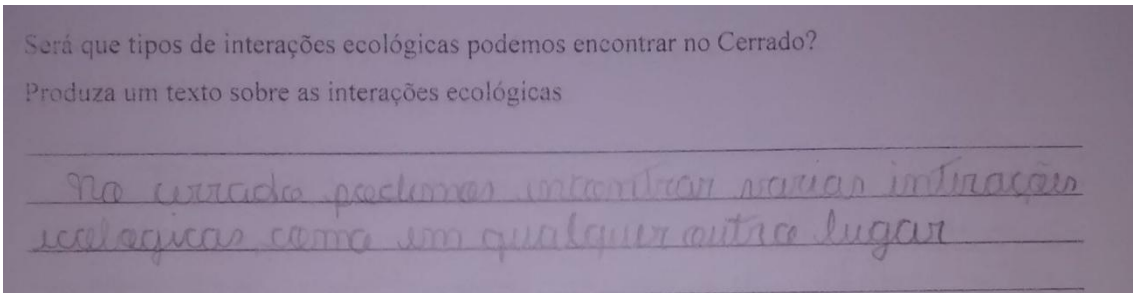 Será que tipos de interações ecológicas podemos encontrar no Cerrado?
Produza um texto sobre as interações ecológicas
No cerrado podemos encontrar varias interações
ecologicas como em qualquer outro lugar